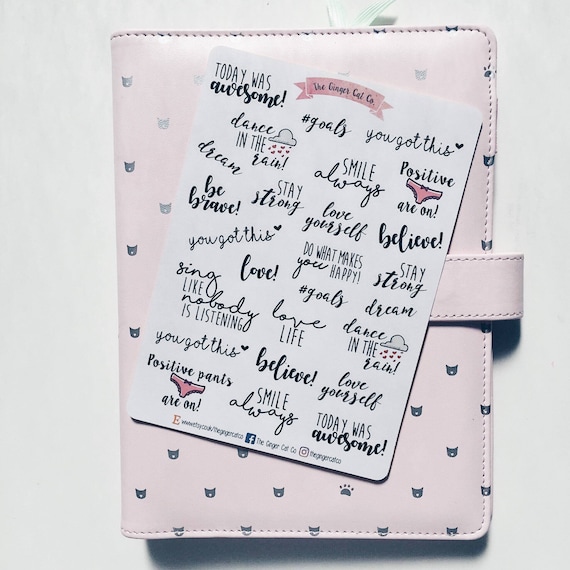 TODAY WAS
awesome!
The Ginger Cat Co.
#goals
you got this
dance
IN THE
rain!
dream
SMILE
always
Positive
are on!
be
brave!
STAY
strong
love
yourself
believe!
you got this
DO WHAT MAKES
you HAPPY!
STAY
strong
sing
LIKE
nobody
IS LISTENING
love!
#goals
dream
love
LIFE
dance
IN THE
rain!
you got this
believe!
love
yourself
Positive pants
are on!
SMILE
always
TODAY WAS
awesome!
www.etsy.co.uk/thegingercatco The Ginger Cat Co thegingercatco